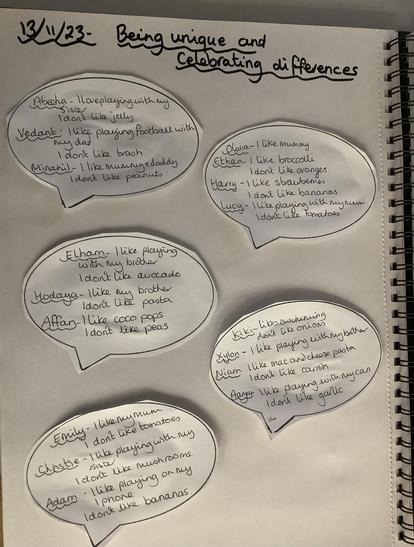 13/11/23- Being unique and
Celebrating differences
- I love playing with my
sister
I don't like jelly
Vedant - I like playing football with
my dad
I don't like
Minahil - I like mummy & daddy
I don't like peanuts
Olivia - I like mummy
Ethan - I like broccolli
I don't like oranges
Harry - I like strawberries
I don't like bananas
Lucy - I like playing with my mum
I don't like tomatoes
Elham - I like playing
with my brother
I don't like avocado
Hodaya - I like my brother
I don't like pasta
Affan - I like coco pops
I don't like peas
Kiki - likes swimming
don't like onions
- I like playing with my brother
- I like mac and cheese pasta
I don't like
- I like playing with my
I don't like garlic
Emily - I like my mum
I don't like tomatoes
Christie - I like playing with my
sister
I don't like mushrooms
Adam - I like playing on my
I phone
I don't like bananas